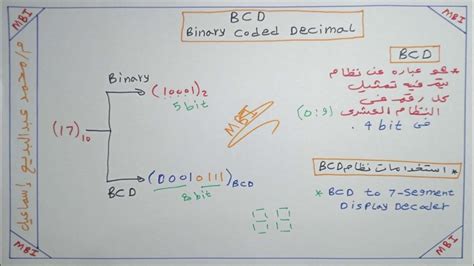 BCD
Binary Coded Decimal
BCD
* هو عباره عن نظام
يتم فيه تمثيل
كل رقم فى
النظام العشرى (0:9)
فى 4 bit.
Binary
(10001)2
5 bit
(17)10
MBI
(00010111)BCD
8 bit
BCD
* استخدامات نظام BCD
* BCD to 7-Segment
Display Decoder
م/محمد عبدالبديع إسماعيل
MBI
MBI
MBI
MBI